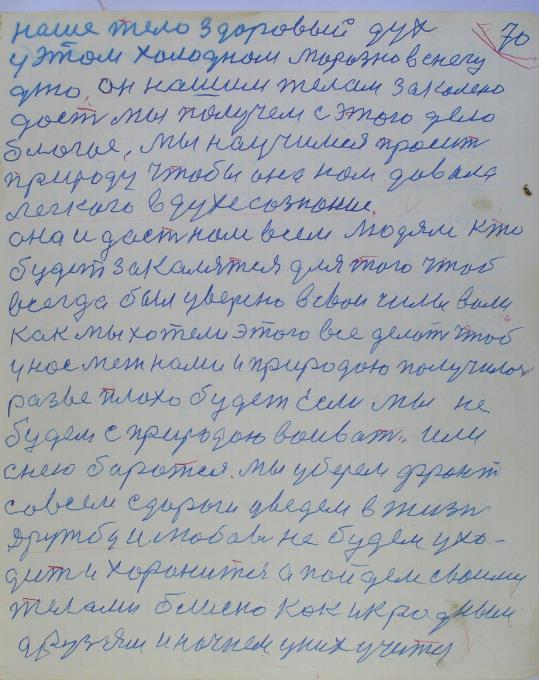 70
наше тело здоровый дух
у этом холодном морозно в снегу
дто, он нашим телам заколено
даст мы получем с этого дело
благое, мы научимся просит
природу чтобы она ном давала
легкого в духе сознание,
она и даст нам всем людям кто
будет закалятся для того чтоб
всегда был уверено в свои чили воли
как мы хотели этого все делат чтоб
у нас меж нами и природою получилос
разве плохо будет если мы не
будем с природою воиват, или
снею баротся. мы уберем фронт
совсем с дороги введем в жизн
дружбу и любов не будем ухо-
дит и хоронится а пойдем своими
телами блиско как и к родным
друзям и начнем у них учится